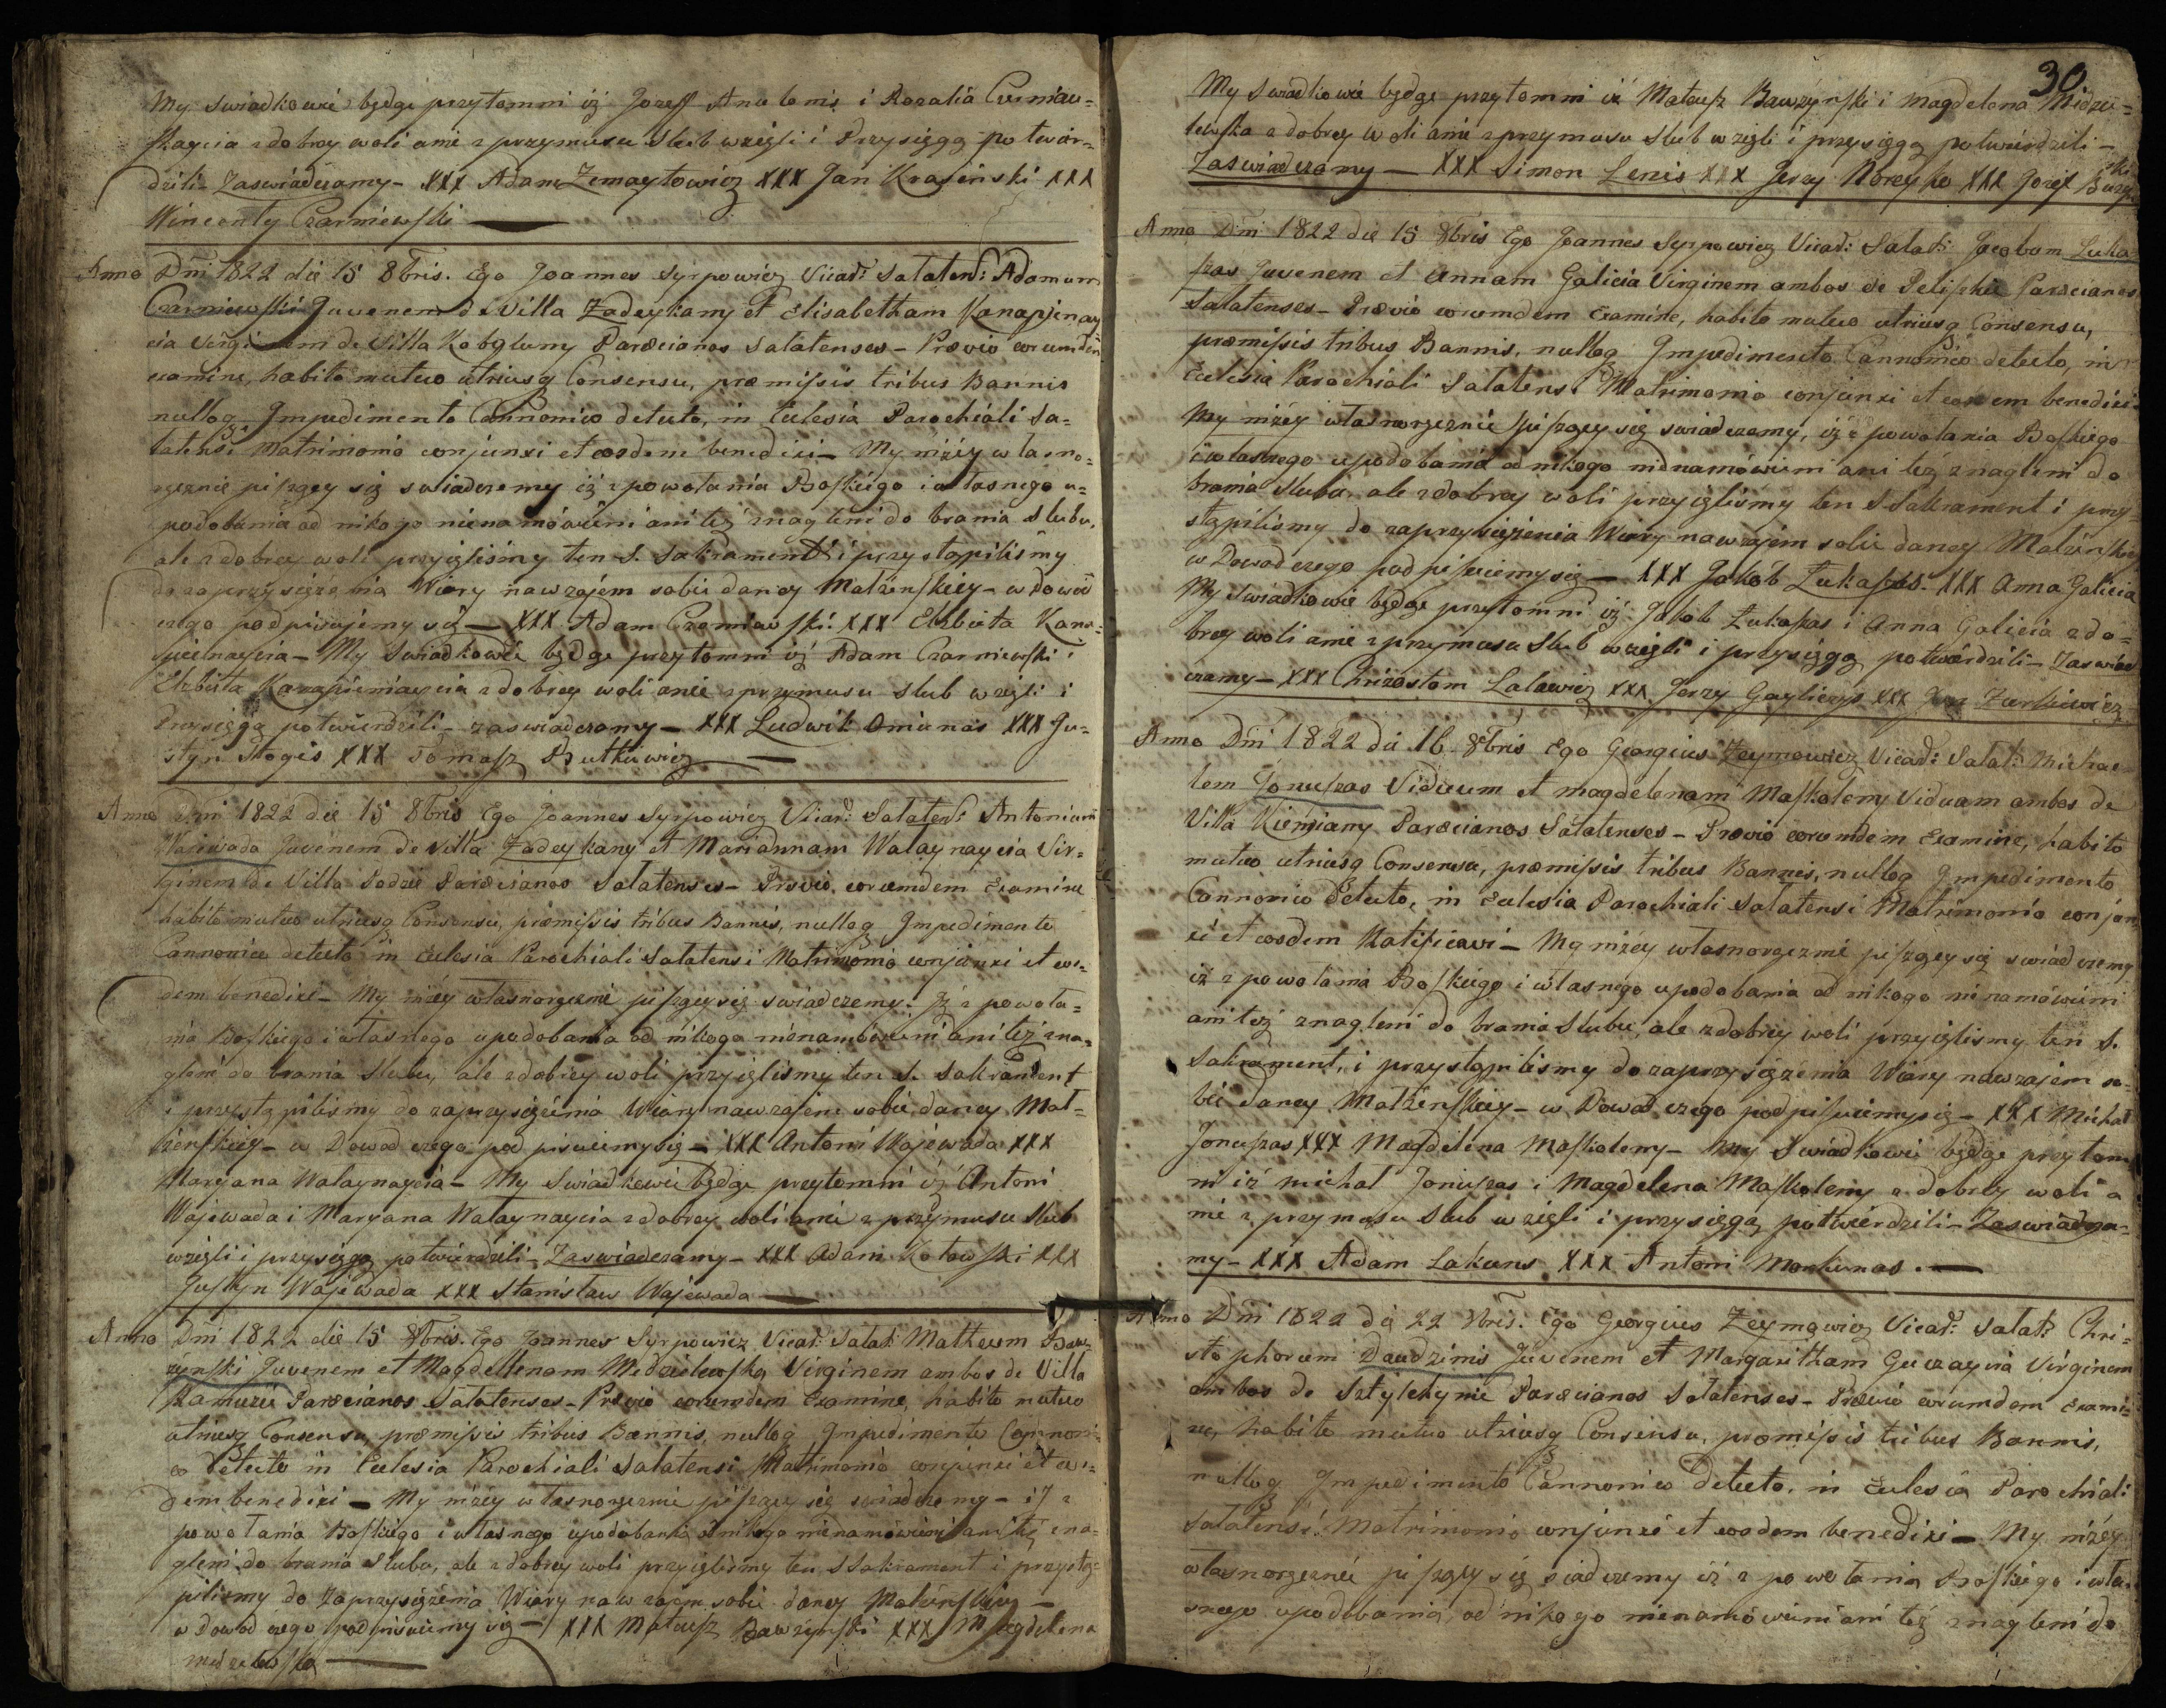 My swiadkowie będąc przytomni iż Jozeff Anulonis i Rozalia Czerniau=
skaycia z dobrey woli a nie z przymusu Slub wzięli i Przysięgą potwier=
dzili Zaswiadczamy - XXX Adam Zmaytowicz XXX Jan Krasinski XXX
Wincenty Czarniewski
Anno Dni 1822 die 15 8bris. Ego Joannes Syrpowicz Vicar: Salaten: Adamum
Czarniewski Juvenem de Villa Zadeykamy et Elisabetham Kanapinay=
cia Virginem de Villa Kobyluny Parœcianos Salatenses - Prævio eorumdem
examine, habito mutuo utriusq Consensu, præmissis tribus Bannis
nulloq Impedimento Cannonico detecto, in Eclesia Parochiali Sa=
latensi Matrimonio conjunxi et eosdem benedixi - My niżéy własno=
ręcznie piszący się swiadczemy iż z powołania Boskiego i własnego u=
podobania od nikogo nienamówieni ani też znagleni do brania Slubu,
ale z dobrey woli przyięlismy ten S. Sakrament i przystąpilismy
do zaprzysiężenia Wiary nawzajem sobie daney Małżenskiey - w dowód
czego podpisujemy się - XXX Adam Czerniawski. XXX Elzbieta Kana=
pieinaycia - My Swiadkowie będąc przytomni iż Adam Czarniewski i
Elzbieta Kanapieniaycia z dobrey woli a nie z przymusu slub wzięli i
Przysięgą potwierdzili - zaswiadczamy - XXX Ludwik Omiunas XXX Ju=
styn Stogis XXX Tomasz Butkiewicz
Anno Dni 1822 Die 15 8bris Ego Joannes Syrpowicz Vicar: Salaten: Antonium
Wajewada Juvenem de Villa Zadeykany et Mariannam Walaynaycia Vir=
ginem de Villa Sodzie Parœcianos Salatenses - Prævio eorumdem Examine
habito mutuo utriusq Consensu, præmissis tribus Bannis, nulloq Impedimento
Cannonico detecto in Eclesia Parochiali Salatensi Matrimonio conjunxi et eos=
dem benedixi - My niżey własnoręcznie piszący się swiadczemy. Iż z powoła=
nia Boskiego i własnego upodobania od nikogo nienamówieni ani też zna=
gleni do brania Slubu, ale z dobrey woli przyięlismy ten S. Sakrament
i przystąpilismy do zaprzysiężenia Wiary nawzajem sobie daney Mał=
żenskiey - w Dowod czego podpisuiemy się - XXX Antoni Wajewada XXX
Maryana Walaynaycia - My Swiadkowie będąc przytomni iż Antoni
Wajewada i Maryana Walaynaycia z dobrey woli a nie z przymusu slub
wzięli i przysięgą potwierdzili - Zaswiadczamy - XXX Adam Kotowski XXX
Justyn Wajewada XXX Stanisław Wajewada
Anno Dni 1822 die 15 8bris. Ego Joannes Syrpowicz Vicar: Salat: Matheum Baw=
rzynski Juvenem et Magdellenam Miedzielewska Virginem ambos de Villa
Ramuzie Parœcianos Salatenses - Prævio eorumdem Examine, habito mutuo
utriusq Consensu, præmissis tribus Bannis, nulloq Impedimento Cannoni=
co Detecto in Eclesia Parochiali Salatensi Matrimonio conjunxi et eos=
dem benedixi - My niżéy własnoręcznie piszący się swiadczemy - iż z
powołania Boskiego i własnego upodobania od nikogo nienamówieni ani też zna=
gleni do brania slubu, ale z dobrey woli przyięlismy ten S Sakrament i przystą=
pilismy do Zaprzysiężenia Wiary nawzajem sobie daney Małżenskiey -
w Dowod czego podpisuiemy się - XXX Mateusz Bawrzynski XXX Magdelena
Miedzelewska
30
My Swiadkowie będąc przytomni iż Mateusz Bawrzynski i Magdelena Miedzie=
lewska z dobrey woli a nie z przymusu Slub wzięli i przysięgą potwierdzili -
Zaswiadczamy - XXX Simon Lenis XXX Jerzy Noreyko XXX Jozef Burzyn
ski
Anno Dni 1822 die 15 8bris Ego Joannes Syrpowicz Vicar: Salat: Jacobum Luka=
szas Juvenem et Annam Galicia Virginem ambos de Peliszkie Parœcianos
Salatenses - Prævio eorumdem Examine, habito mutuo utriusq Consensu,
præmissis tribus Bannis, nulloq Impedimento Cannonico detecto, in
Eclesia Parochiali Salatensi Matrimonio conjunxi et eosdem benedixi.
My niżéy własnoręcznie piszący się swiadczemy, iż z powołania Boskiego
i własnego upodobania od nikogo nienamówieni ani też znagleni do
brania Slubu, ale z dobrey woli przyięlismy ten S Sakrament i przy=
stąpilismy do zaprzysiężenia Wiary nawzajem sobie daney Małżenskiey
w Dowod czego podpisuiemy się - XXX Jakób Łukaszas. XXX Anna Galicia
My Swiadkowie będąc przytomni iż Jakob Łukaszas i Anna Galicia z do=
brey woli a nie z przymusu Slub wzięli i przysięgą potwierdzili - Zaswiad
czamy - XXX Chrizostom Lalewicz XXX Jerzy Gaylierys XXX Jan Zurkiewicz
Anno Dni 1822 die 16 8bris Ego Georgius Zeymowicz Vicar: Salat: Michae=
lem Jonuszas Viduum et Magdelenam Maskoleny Viduam ambos de
Villa Kiemiany Parœcianos Salatenses - Prævio eorumdem Examine, habito
mutuo utriusq Consensu, præmissis tribus Bannis, nulloq Impedimento
Cannonico Detecto, in Eclesia Parochiali Salatensi Matrimonio conjun
xi et eosdem Ratificavi - My niżéy własnoręcznie piszący się swiadczemy
iż z powołania Boskiego i własnego upodobania od nikogo nienamówieni
ani też znagleni do brania Slubu, ale z dobrey woli przyięlismy ten S.
Sakrament, i przystąpilismy do zaprzysiężenia Wiary nawzajem so=
bie daney Małżenskiey - w Dowod czego podpisuiemy się - XXX Michał
Jonuszas XXX Magdelena Maskoleny - My Swiadkowie będąc przytom
ni iż Michał Jonuszas i Magdelena Maskoleny z dobrey woli a
nie z przymusu Slub wzięli i przysięgą potwierdzili - Zaswiadcza=
my - XXX Adam Lakuns XXX Antoni Monkunas.
Anno Dni 1822 die 22 8bris. Ego Georgius Zeymowicz Vicar: Salat: Chri=
stophorum Daudzinis Juvenem et Margaritham Guczaycia Virginem
ambos de Sztylchynie Parœcianos Salatenses - Prævio eorumdem Exami=
ne, habito mutuo utriusq Consensu, præmissis tribus Bannis,
nulloq Impedimento Cannonico Detecto, in Eclesia Parochiali
Salatensi Matrimonio conjunxi et eosdem benedixi - My niżéy
własnoręcznie piszący się siadczemy iż z powołania Boskiego i wła=
snego upodobania, od nikogo nienamówieni ani też znagleni do